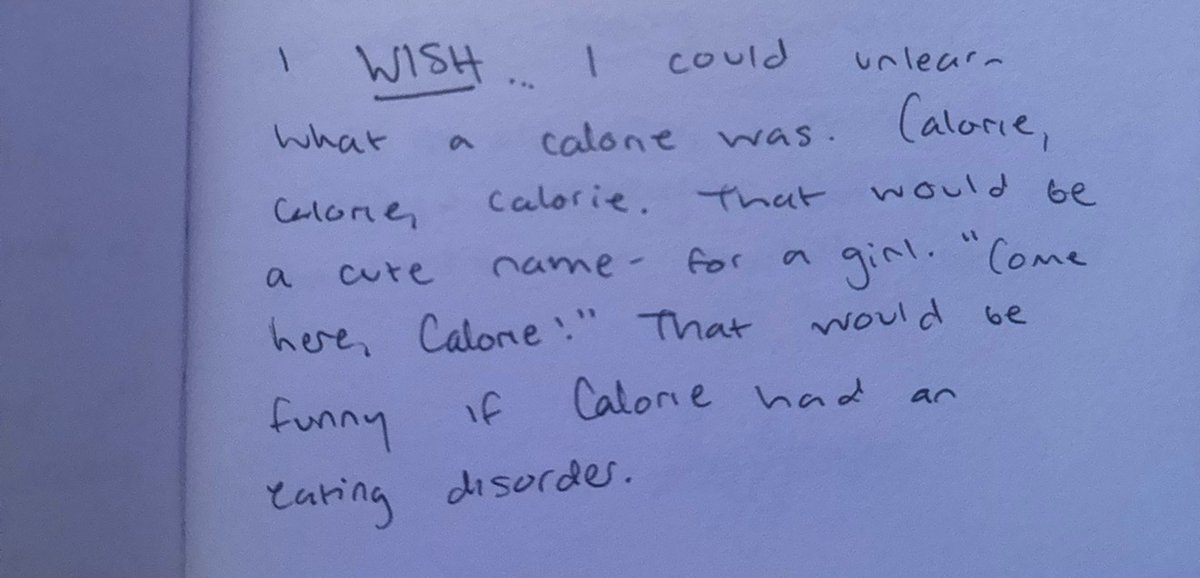 I WISH... I could unlearn
what a calorie was. Calorie,
calorie, calorie. That would be
a cute name - for a girl. "Come
here, Calorie!" That would be
funny if Calorie had an
eating disorder.